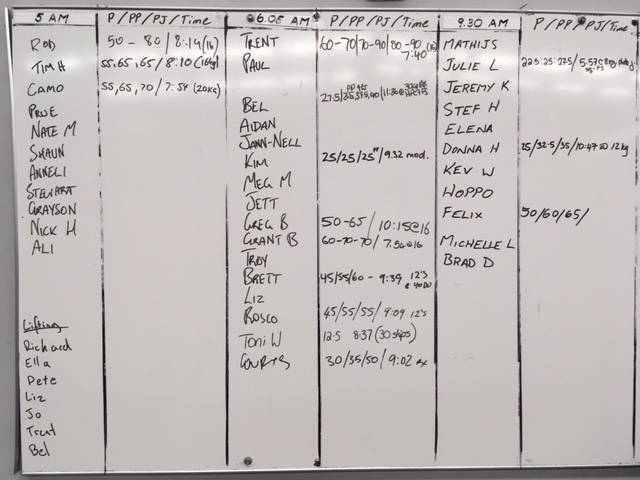 5 AM P/PP/PJ/Time
ROD 50 - 80 / 8:14 (16)
TIM H 55,65,65 / 8:10 (16kg)
CAMO 55,65,70 / 7:54 (20KG)
PRUE
NATE M
SHAUN
ANNELI
STEWART
GRAYSON
NICK H
ALI
Lifting
Richard
Ella
Pete
Liz
Jo
Trent
Bel
6.05 AM P/PP/PJ/Time
TRENT 60-70/70-90/80-90 (16)
7:40
PAUL
BEL 27.5/
AIDAN
JANN-NELL
KIM 25/25/25"/9.32 mod.
MEG M
JETT
GREG B 50-65/ 10:15@16
GRANT B 60-70-70/ 7.54@16
TROY
BRETT 45/55/60 - 9:39 12's
LIZ
ROSCO 45/55/55/ 9:09 12's
TONI W 12.5 8.37 (30 skips)
COURTS 30/35/50/ 9:02 rx
9.30 AM P/PP/PJ/Time
MATHIJS
JULIE L 22.5.25.27.5/ 5:57
JEREMY K
STEF H
ELENA
DONNA H 25/32.5/35/10:47 @ 12kg
KEV W
WOPPO
FELIX 50/60/65/
MICHELLE L
BRAD D